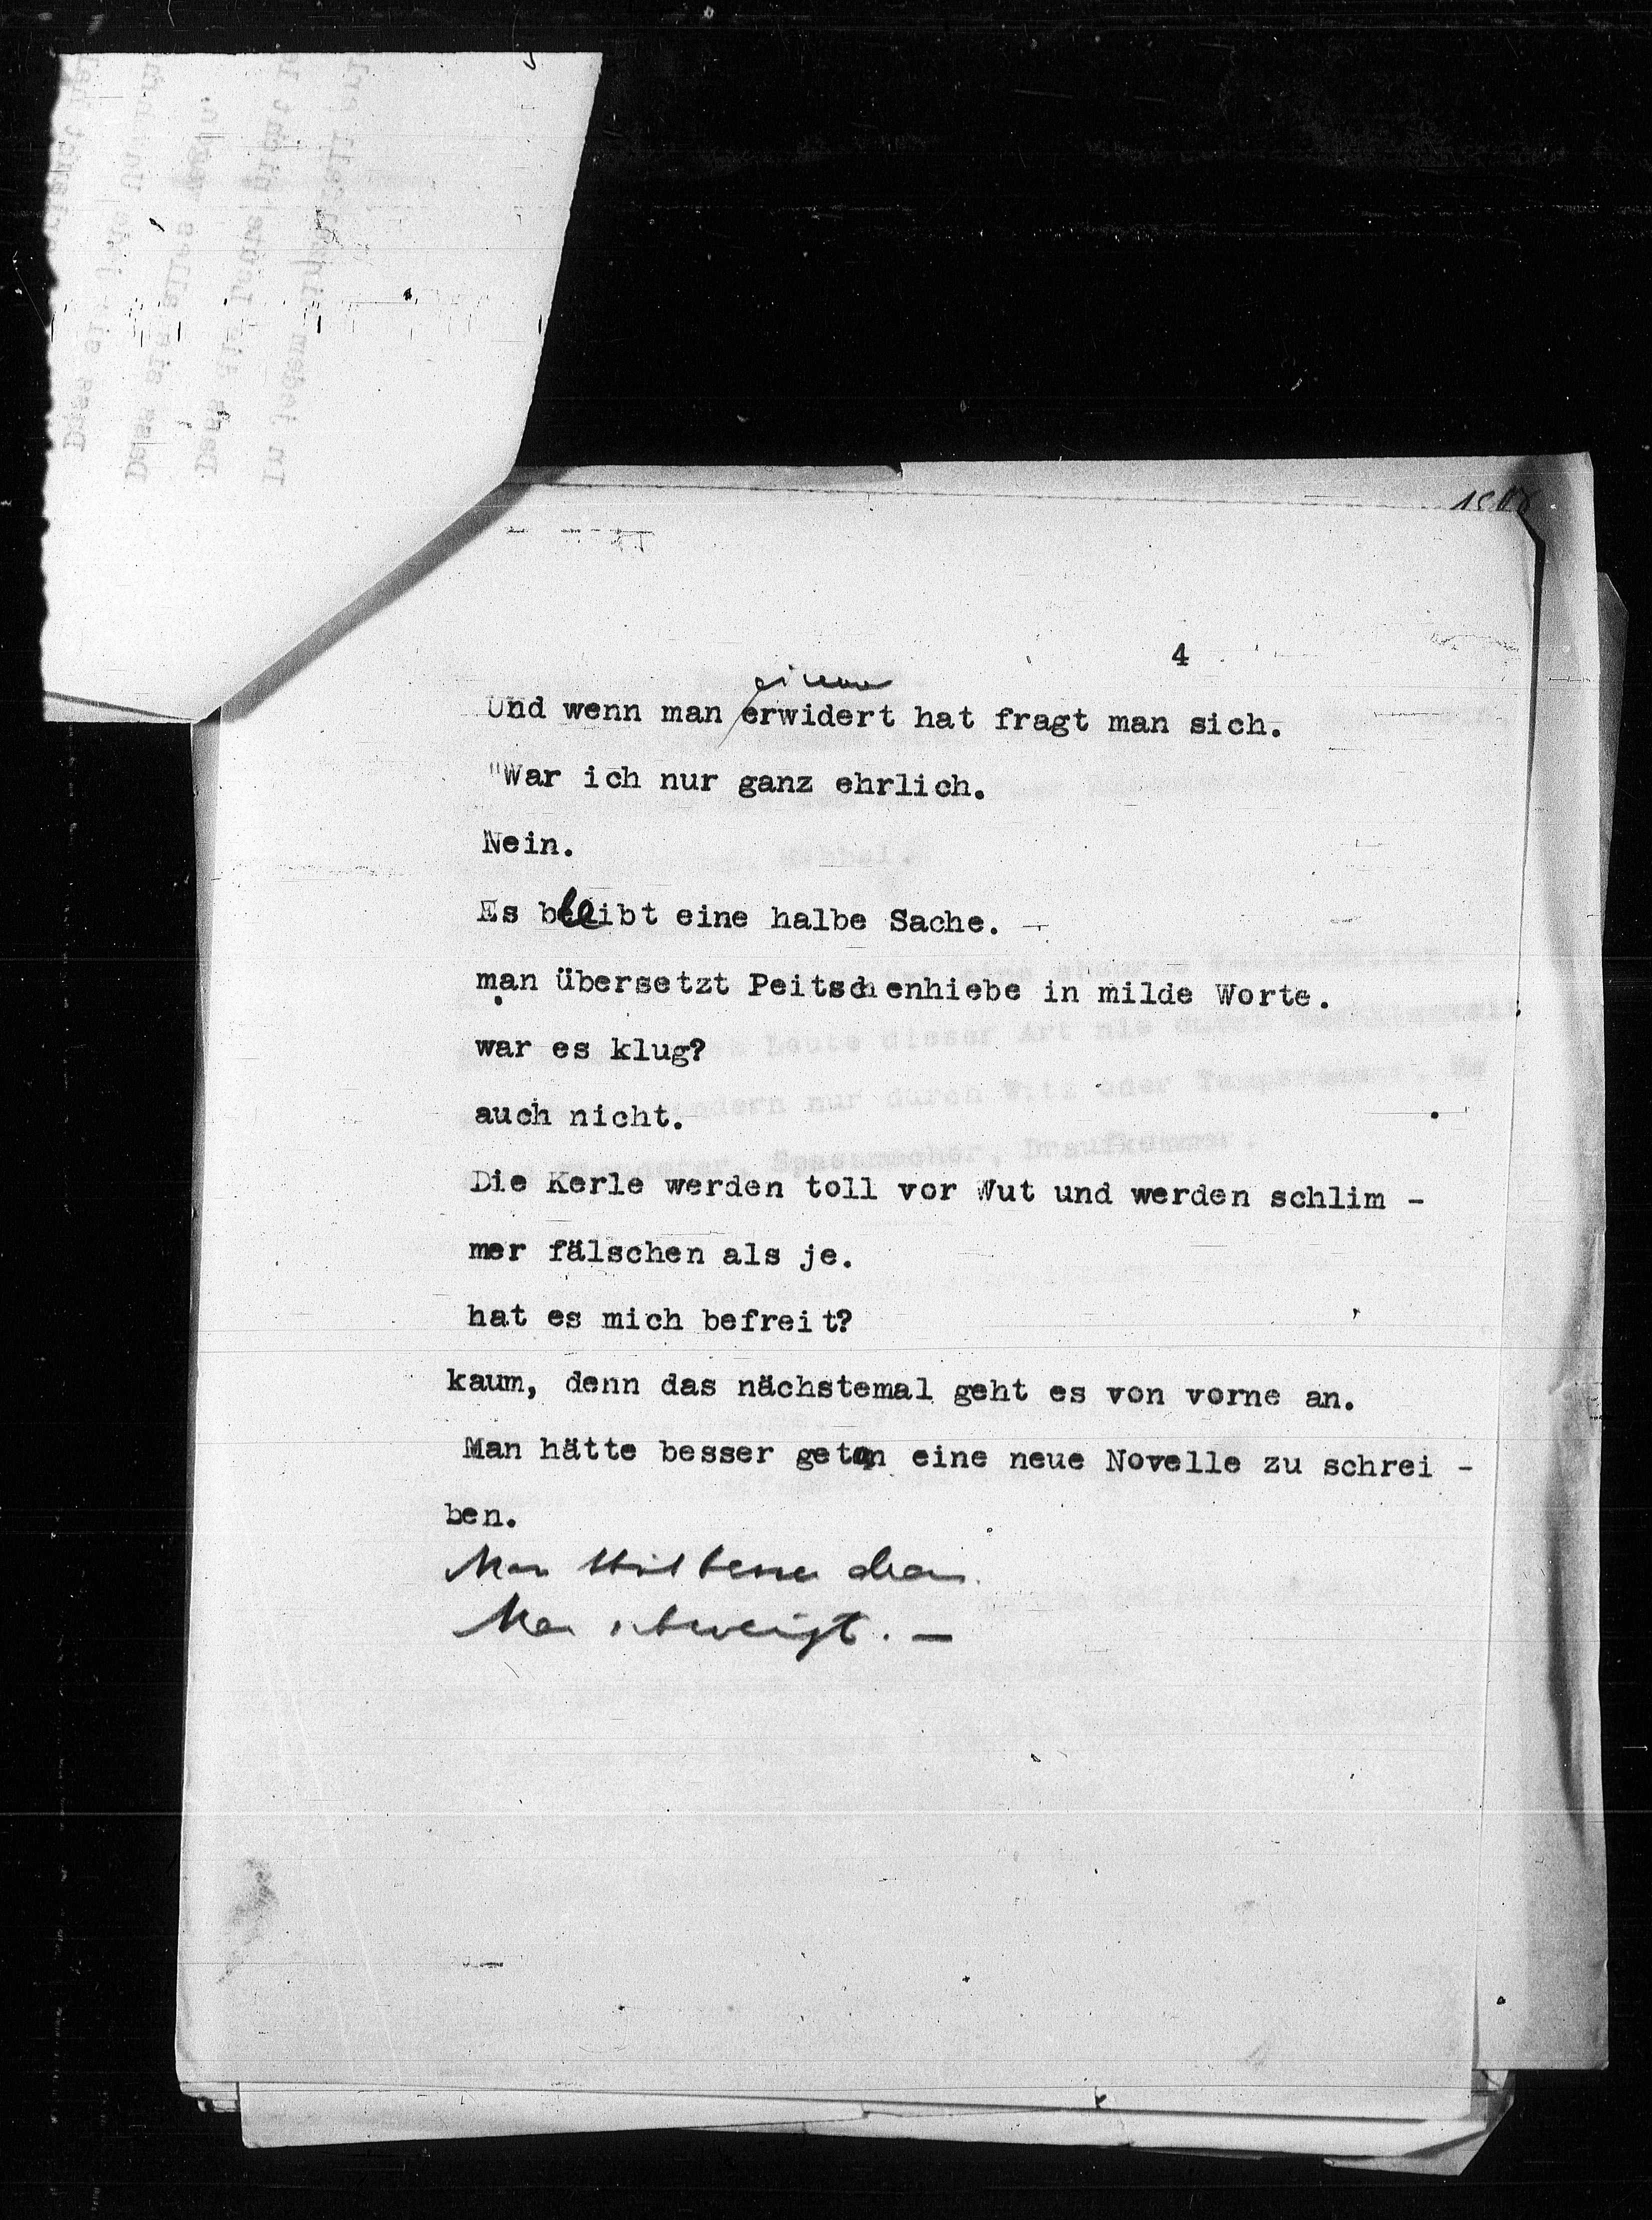 4
einem
Und wenn man erwidert hat fragt man sich.
"War ich nur ganz ehrlich.
Nein.
Es bleibt eine halbe Sache. -
man übersetzt Peitschenhiebe in milde Worte.
war es klug?
auch nicht.
Die Kerle werden toll vor Wut und werden schlim -
mer fälschen als je.
hat es mich befreit?
kaum, denn das nächstemal geht es von vorne an.
Man hätte besser getan eine neue Novelle zu schrei -
ben.
Man
Man schweigt. —